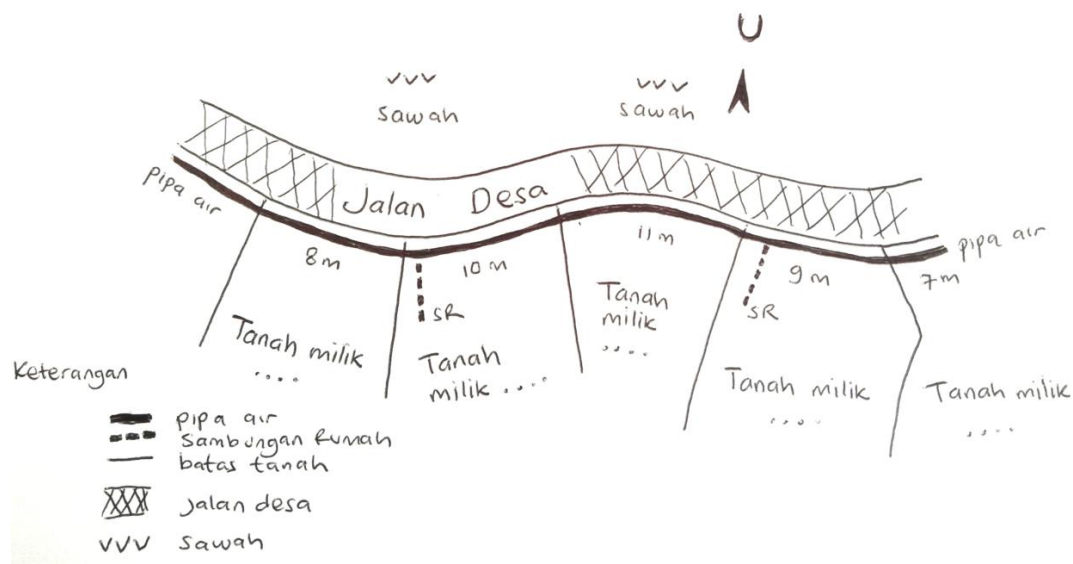 U
sawah
sawah
Pipa air
Jalan Desa
pipa air
8m
10 m
11 m
9 m
7m
SR
SR
Tanah milik
....
Tanah
milik ....
Tanah
milik
....
Tanah milik
....
Tanah milik
....
Keterangan
pipa air
Sambungan Rumah
batas tanah
Jalan desa
sawah